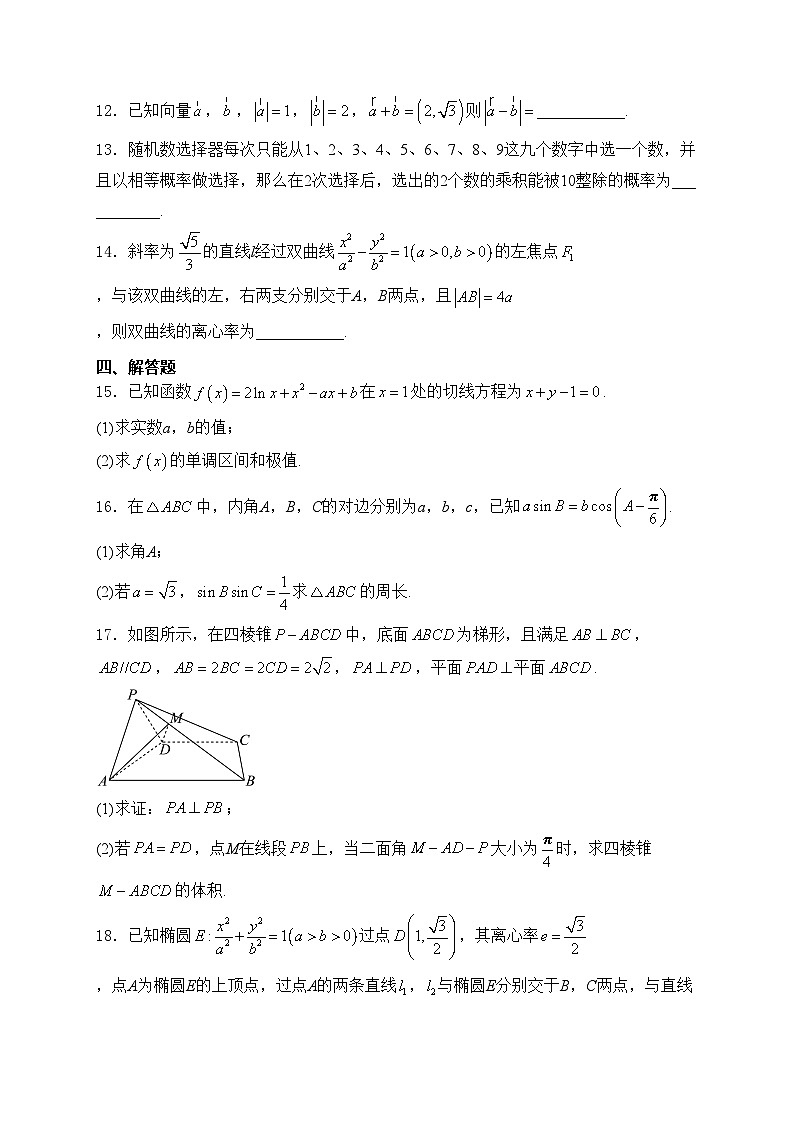 12．已知向量a，b，|a|=1，|b|=2，a+b=(2,√3)则|a−b|=___________.
13．随机数选择器每次只能从1、2、3、4、5、6、7、8、9这九个数字中选一个数，并
且以相等概率做选择，那么在2次选择后，选出的2个数的乘积能被10整除的概率为___
________.
14．斜率为√5/3的直线l经过双曲线x²/a²−y²/b²=1(a>0,b>0)的左焦点F₁
，与该双曲线的左，右两支分别交于A，B两点，且|AB|=4a
，则双曲线的离心率为___________.
四、解答题
15．已知函数f(x)=2ln x+x²−ax+b在x=1处的切线方程为x+y−1=0.
(1)求实数a，b的值；
(2)求f(x)的单调区间和极值.
16．在△ABC中，内角A，B，C的对边分别为a，b，c，已知a sin B=b cos(A−π/6).
(1)求角A；
(2)若a=√3，sin B sin C=1/4求△ABC的周长.
17．如图所示，在四棱锥P−ABCD中，底面ABCD为梯形，且满足AB⊥BC，
AB//CD，AB=2BC=2CD=2√2，PA⊥PD，平面PAD⊥平面ABCD.
P
M
D
C
A
B
(1)求证：PA⊥PB；
(2)若PA=PD，点M在线段PB上，当二面角M−AD−P大小为π/4时，求四棱锥
M−ABCD的体积.
18．已知椭圆E:x²/a²+y²/b²=1(a>b>0)过点D(1,√3/2)，其离心率e=√3/2
，点A为椭圆E的上顶点，过点A的两条直线l₁，l₂与椭圆E分别交于B，C两点，与直线